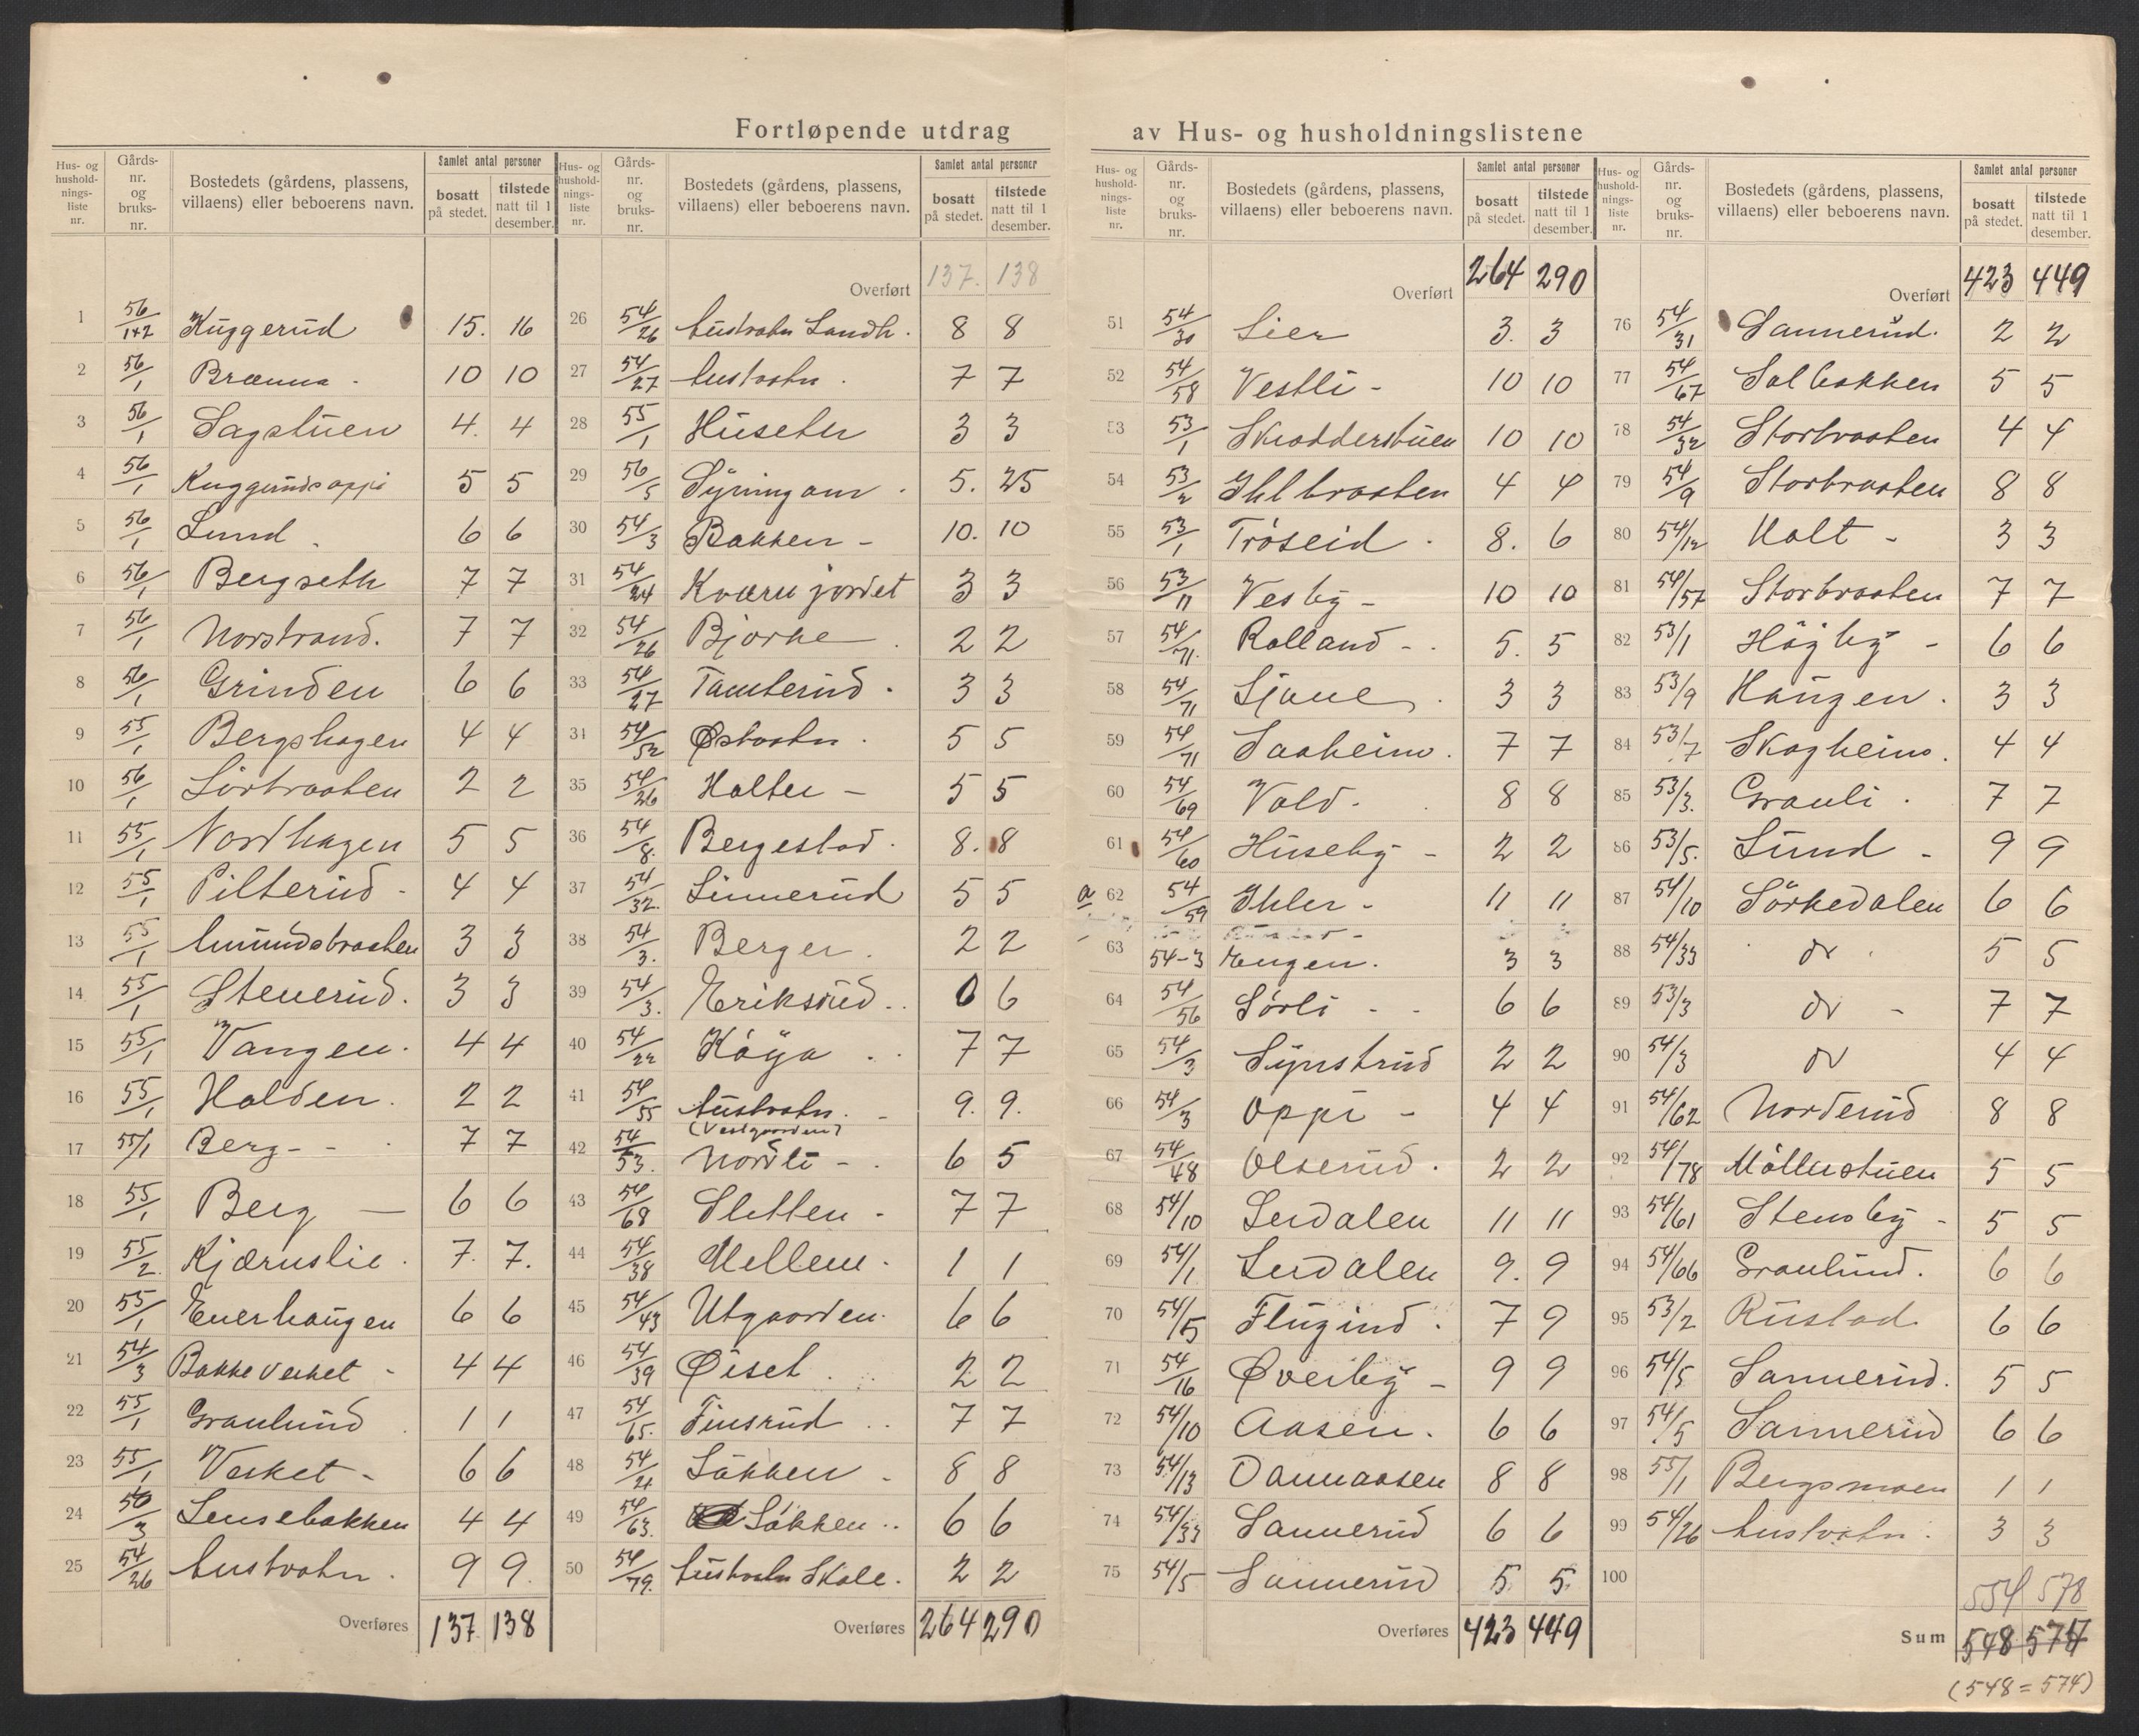 Fortløpende utdrag av Hus- og husholdningslistene
Hus- og husholdningsliste nr. | Gårdsnr. og bruksnr. | Bostedets (gårdens, plassens, villaens) eller beboerens navn. | Samlet antal personer bosatt på stedet. | tilstede natt til 1 desember.
1 56/1+2 Kuggerud 15. 16
2 56/1 Brænna. 10 10
3 56/1 Sagstuen 4. 4
4 56/1 Kuggerudsoppi 5 5
5 56/1 Lund 6 6
6 56/1 Bergseth 7 7
7 56/1 Norstrand. 7 7
8 56/1 Grinden 6 6
9 55/1 Bergshagen 4 4
10 56/1 Sörbraaten 2 2
11 55/1 Nordhagen 5 5
12 55/1 Pilterud - 4 4
13 55/1 Amundsbraaten 3 3
14 55/1 Stenerud. 3 3
15 55/1 Vangen. 4 4
16 55/1 Holden. 2 2
17 55/1 Berg - - 7 7
18 55/1 Berg — 6 6
19 55/2 Kjærnslie. 7. 7.
20 55/1 Enerhaugen 6 6
21 54/3 Bakke verket - 4 4
22 55/1 Granlund 1 1
23 55/1 Verket - 6 6
24 56/3 Lensebakken 4 4
25 54/26 Austvatn. 9 9
Overføres 137 138
Hus- og husholdningsliste nr. | Gårdsnr. og bruksnr. | Bostedets (gårdens, plassens, villaens) eller beboerens navn. | Samlet antal personer bosatt på stedet. | tilstede natt til 1 desember.
Overført 137. 138
26 54/26 Austvatn Landh. 8 8
27 54/27 Austvatn. 7 7
28 55/1 Huseter 3 3
29 56/5 5. 25
30 54/3 Bakken - 10. 10
31 54/24 Kværnjordet 3 3
32 54/26 Bjørke 2 2
33 54/27 Tamterud. 3 3
34 54/52 Østvatn. 5 5
35 54/26 Holter - 5 5
36 54/8. Bergestad. 8. 8
37 54/32. Linnerud 5 5
38 54/3. Berger. 2 2
39 54/3. Eriksrud.. 6 6
40 54/22 Köya.. 7 7
41 54/55 Austvatn. - 9. 9.
(Vestgaarden)
42 54/53. Nordli - 6 5
43 54/68 Sletten - 7 7
44 54/38 Mellem. 1 1
45 54/43 Utgaarden. 6 6
46 54/39 Øiset. 2 2
47 54/65. Finsrud.. 7 7
48 54/21 Lökken - 8 8
49 54/63. Lökken.. 6 6
50 54/79. Austvatn Skole. 2 2
Overføres 264 290
Hus- og husholdningsliste nr. | Gårdsnr. og bruksnr. | Bostedets (gårdens, plassens, villaens) eller beboerens navn. | Samlet antal personer bosatt på stedet. | tilstede natt til 1 desember.
Overført 264 290
51 54/30 Lier 3. 3
52 54/58 Vestli - 10 10
53 53/1 Skradderstuen 10 10
54 53/2 Ihlbraaten 4 4
55 53/1 Tröseid. 8. 6
56 53/11 Vesby - 10 10
57 54/71. Rolland -. 5. 5
58 54/71 Ljane. 3 3
59 54/71 Saaheim. 7 7
60 54/69 Vold. 8 8
61 54/60 Huseby - 2 2
a 62 54/59 Ihler - 11 11
63 54-3 Engen. 3 3
64 54/56 Sörli - - 6 6
65 54/3 Synstrud 2 2
66 54/3 Oppi - 4 4
67 54/48 Olserud. 2 2
68 54/10 Lerdalen 11 11
69 54/1 Lerdalen 9. 9
70 54/5 Flugind. 7 9
71 54/16 Øverby - 9 9
72 54/10 Aasen. 6 6
73 54/13 Dannaasen 8 8
74 54/33 Sannerud 6 6
75 54/5 Sannerud 5 5.
Overføres 423 449
Hus- og husholdningsliste nr. | Gårdsnr. og bruksnr. | Bostedets (gårdens, plassens, villaens) eller beboerens navn. | Samlet antal personer bosatt på stedet. | tilstede natt til 1 desember.
Overført 423 449
76 54/31 Sannerud. 2 2
77 54/67 Solbakken 5 5
78 54/32 Storbraaten 4 4
79 54/9 Storbraaten 8 8
80 54/12 Holt - 3 3
81 54/57 Storbraaten 7 7
82 53/1 Högby - 6 6
83 53/9 Haugen. 3 3
84 53/7 Skogheim. 4 4
85 53/3. Granli. 7 7
86 53/5. Lund - 9 9
87 54/10 Sörkedalen 6 6
88 54/33 do 5 5
89 53/3 do - 7 7
90 54/3 do 4 4
91 54/62 Norderud 8 8
92 54/78 Möllerstuen 5 5
93 54/61 Stensby - 5 5
94 54/66 Granlund. 6 6
95 53/2 Rustad 6 6
96 54/5 Sannerud. 5 5
97 54/5 Sannerud 6 6
98 55/1 Bergsmoen 1 1
99 54/26 Austvatn. 3 3
100
554 578
Sum 548 574
(548 = 574)